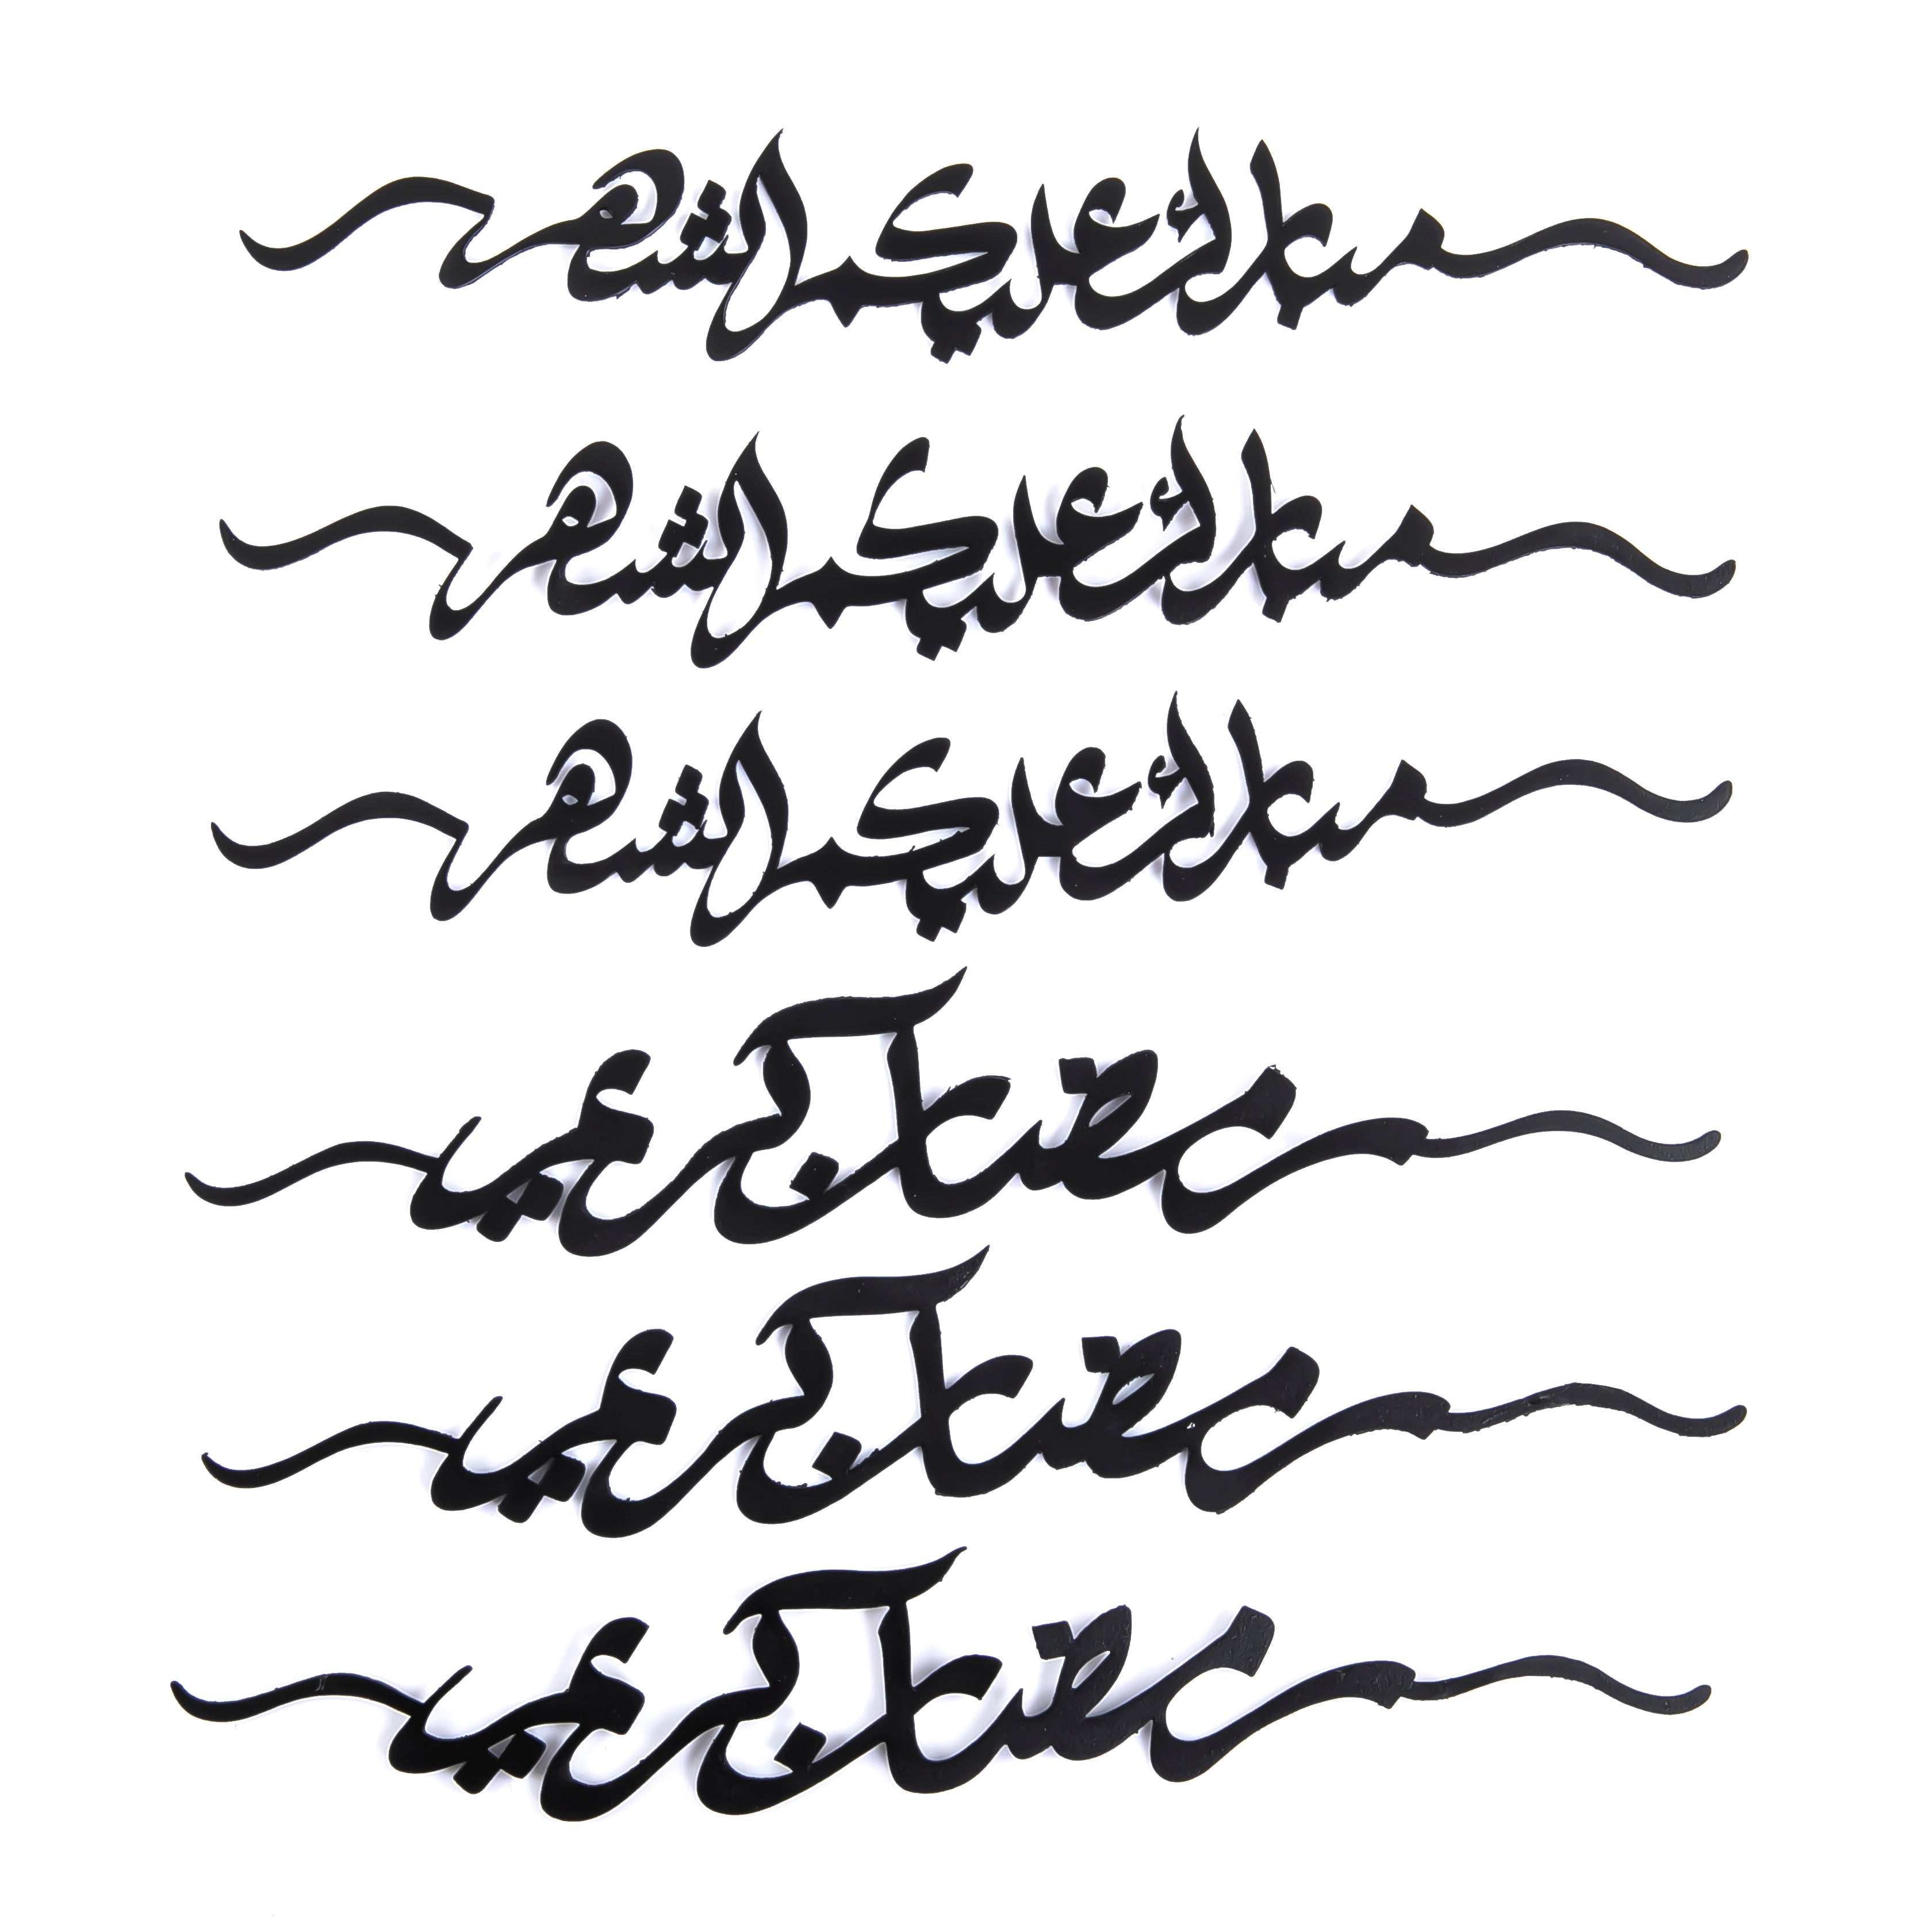 مبارك عليكم الشهر
مبارك عليكم الشهر
مبارك عليكم الشهر
رمضان كريم
رمضان كريم
رمضان كريم